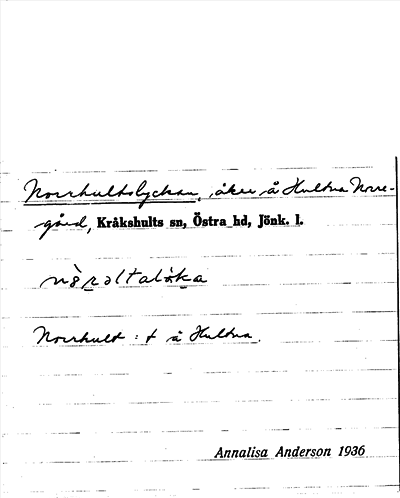 Norrhultslyckan, åker å Hultna Norre-
gård, Kråkshults sn, Östra hd, Jönk. l.
nòraltalỳka
Norrhult : t å Hultna.
Annalisa Anderson 1936